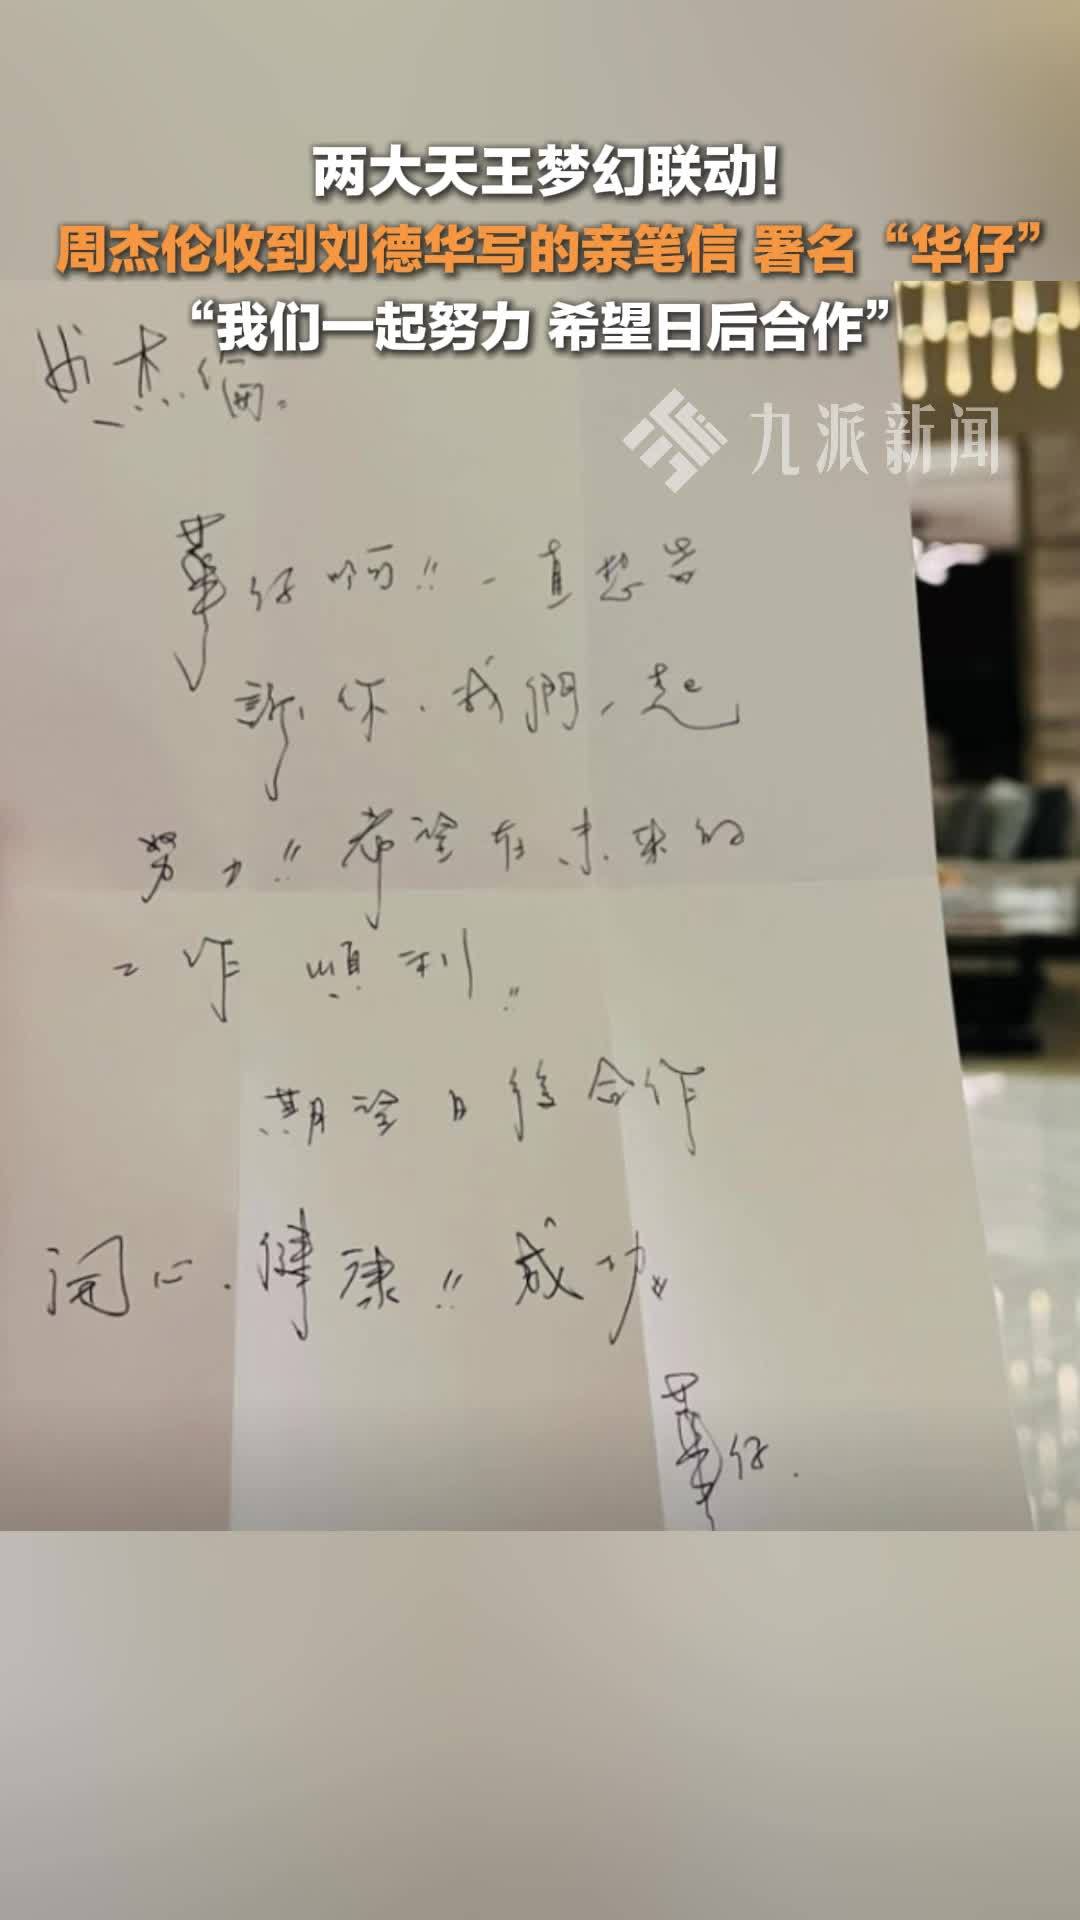 两大天王梦幻联动！
周杰伦收到刘德华写的亲笔信 署名“华仔”
“我们一起努力 希望日后合作”
九派新闻
杰倫。
華仔啊!! 一直想告
訴你．我們一起
努力!! 希望在未来的
工作 順利!!
期望日後合作
開心．健康!! 成功!!
華仔．